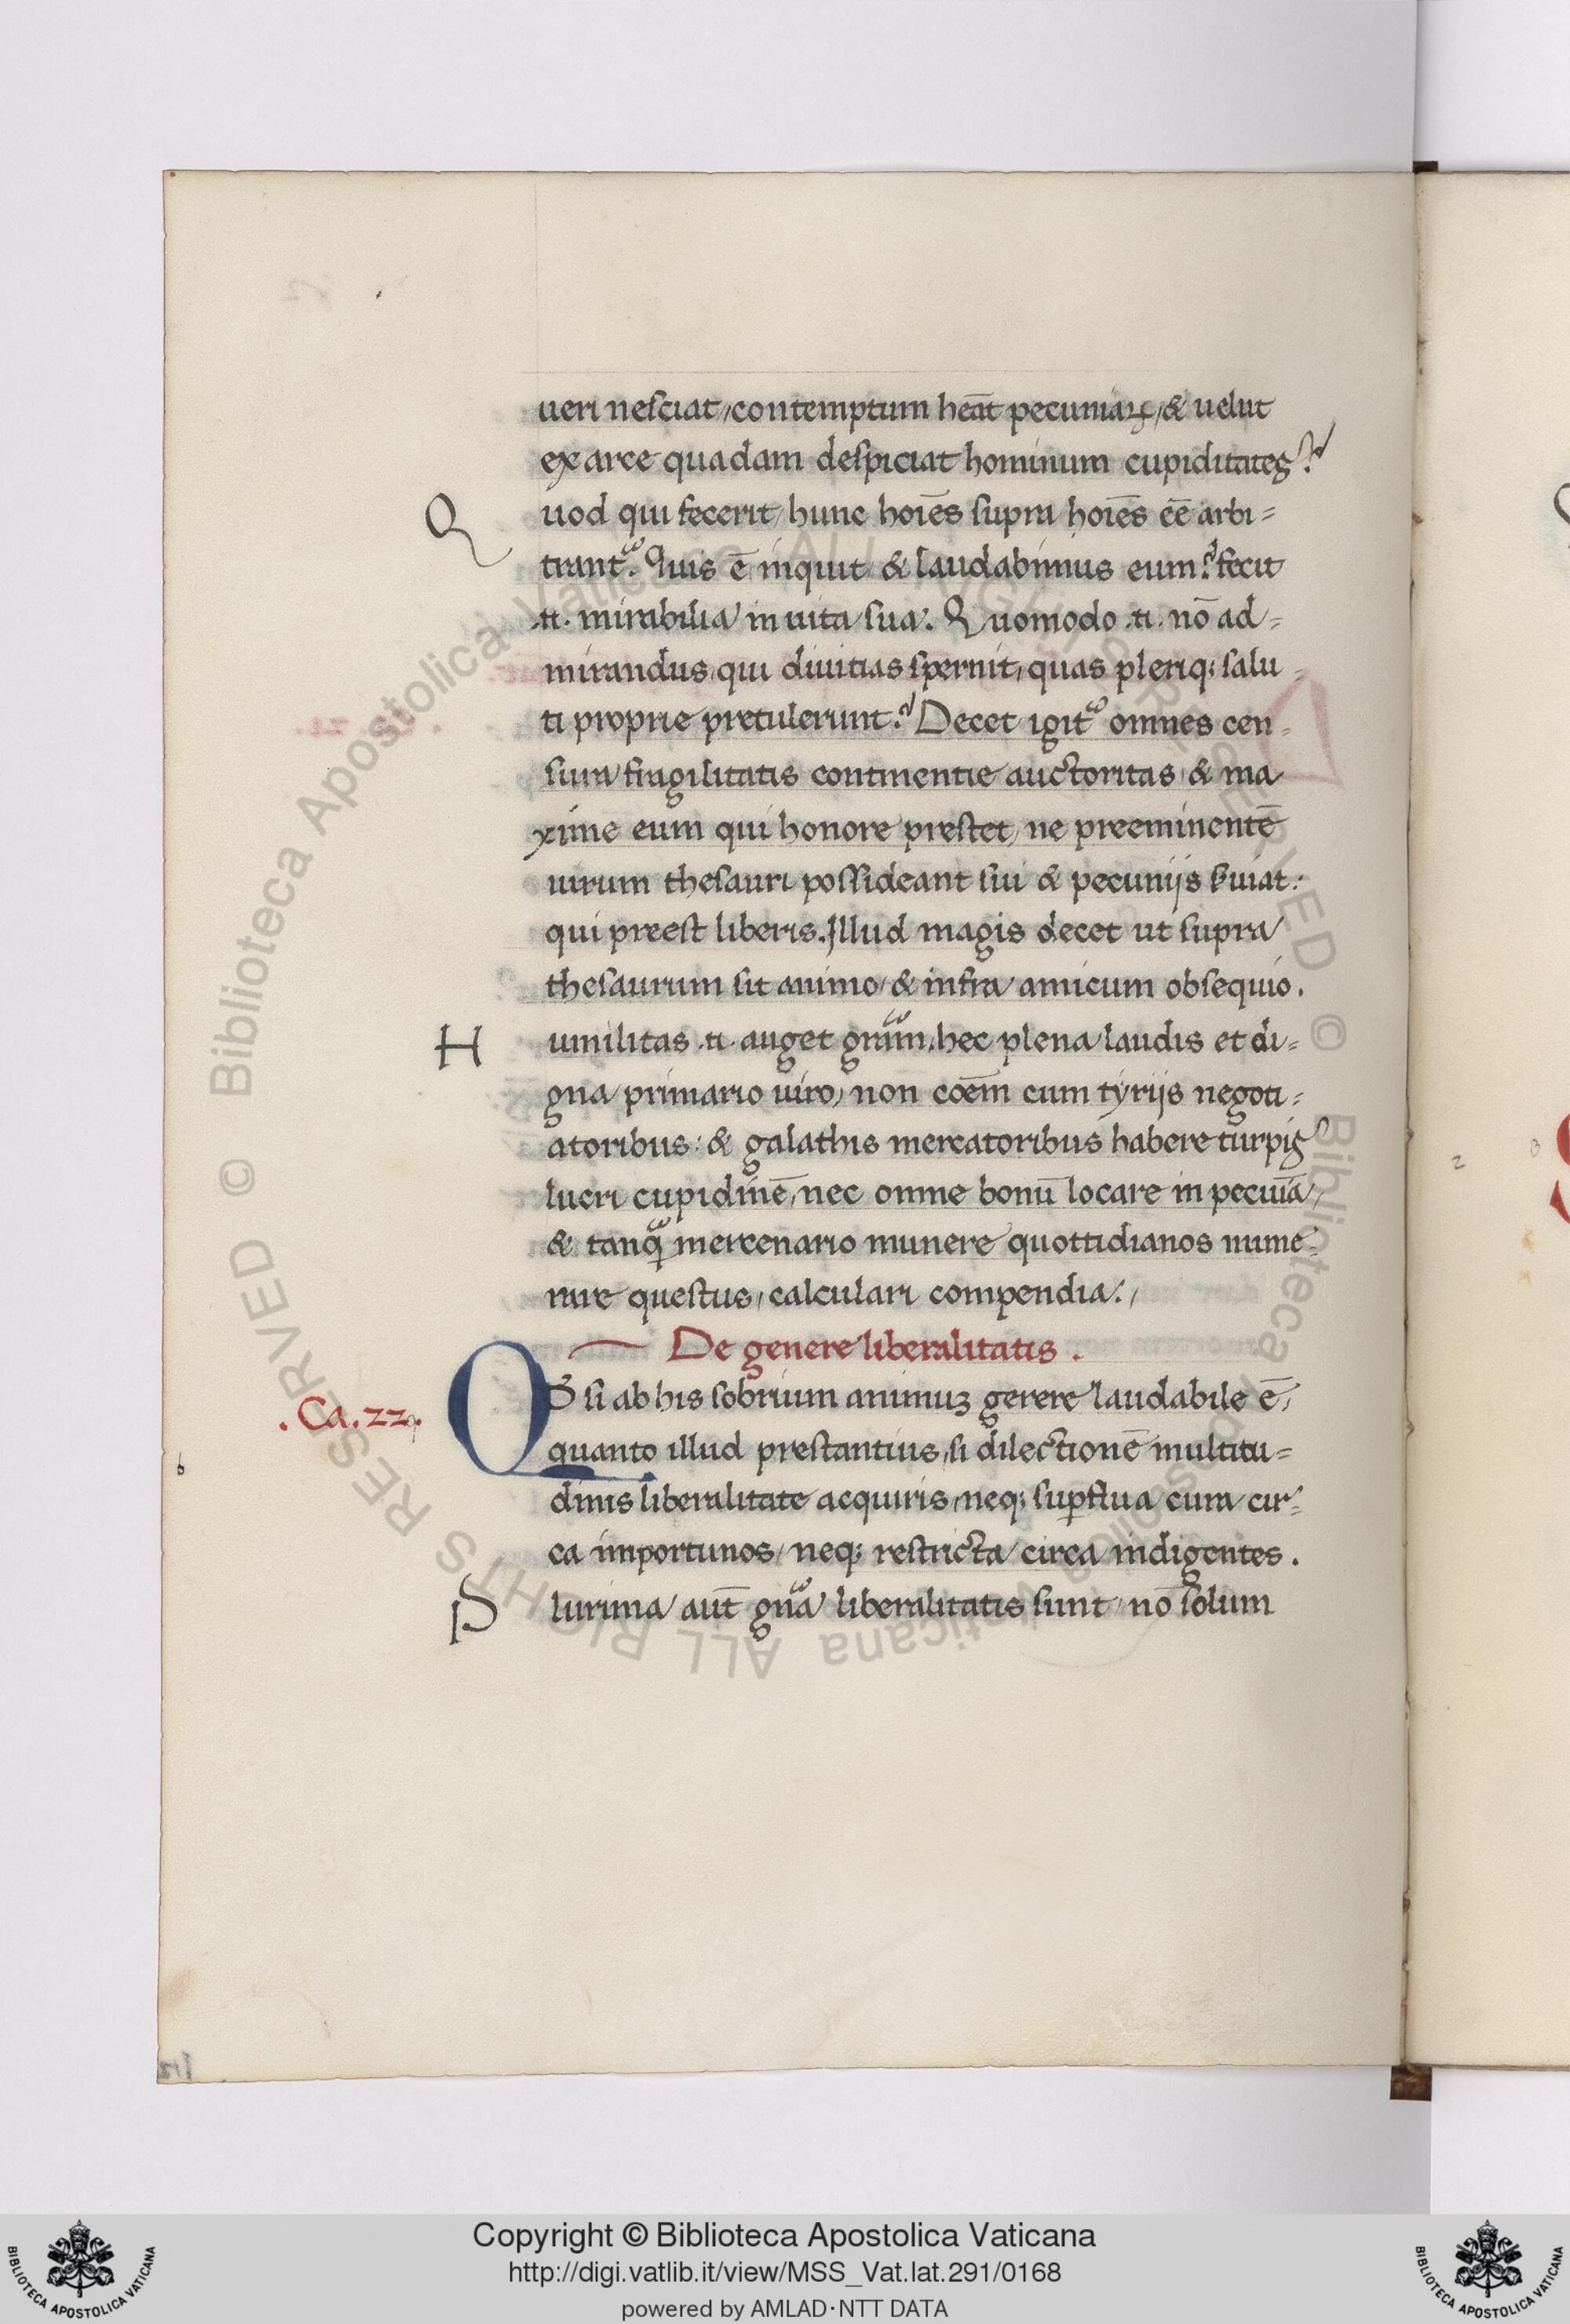 ueri nesciat, contemptum heāt pecuniaꝝ, & uelut
ex arce quadam despiciat hominum cupiditateꝫ?
Quod qui fecerit, hunc hoīēs supra hoīēs eē arbi=
trant᷑. Quis ē inquit & laudabimus eum? fecit
.n. mirabilia in uita sua. Quomodo .n. nō ad=
mirandus, qui diuitias spernit, quas pleriq; salu
ti proprie pretulerunt? Decet igit᷑ omnes cen=
sura fragilitatis continentie auctoritas & ma
xime eum qui honore prestet, ne preeminentē
uirum thesauri possideant sui & pecunijs ẜuiat:
qui preest liberis. Illud magis decet ut supra
thesaurum sit animo, & infra amicum obsequio.
Humilitas .n. auget gr̄am. hec plena laudis et di=
gna primario uiro, non cōem cum tyrijs negoti=
atoribus: & galathis mercatoribus habere turpiꝫ
lucri cupidinē, nec omne bonū locare in pecuīa,
& tanq̄ mercenario munere quottidianos nume=
rare questus, calculari compendia:,
De genere liberalitatis .
.Ca. 22.
QD si ab his sobrium animuꝫ gerere laudabile ē,
quanto illud prestantius, si dilectionē multitu=
dinis liberalitate acquiris, neq; suꝑflua cura cir=
ca importunos, neq; restricta circa indigentes.
Plurima aut̄ gn̄a liberalitatis sunt, nō solum
b
© Biblioteca Apostolica Vaticana ALL RIGHTS RESERVED
Copyright © Biblioteca Apostolica Vaticana
http://digi.vatlib.it/view/MSS_Vat.lat.291/0168
powered by AMLAD·NTT DATA
BIBLIOTECA APOSTOLICA VATICANA
BIBLIOTECA APOSTOLICA VATICANA